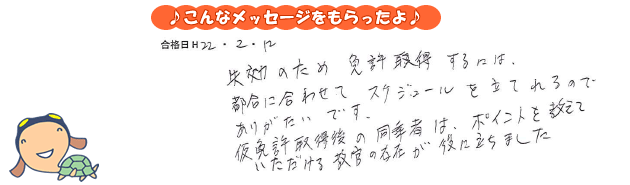 ♪こんなメッセージをもらったよ♪
合格日H22・2・12
失効のため 免許取得 するには、
都合に合わせて スケジュール を 立てれるので
ありがたいです。
仮免許取得後の同乗者は、ポイントを教えて
いただける教官の存在が役に立ちました